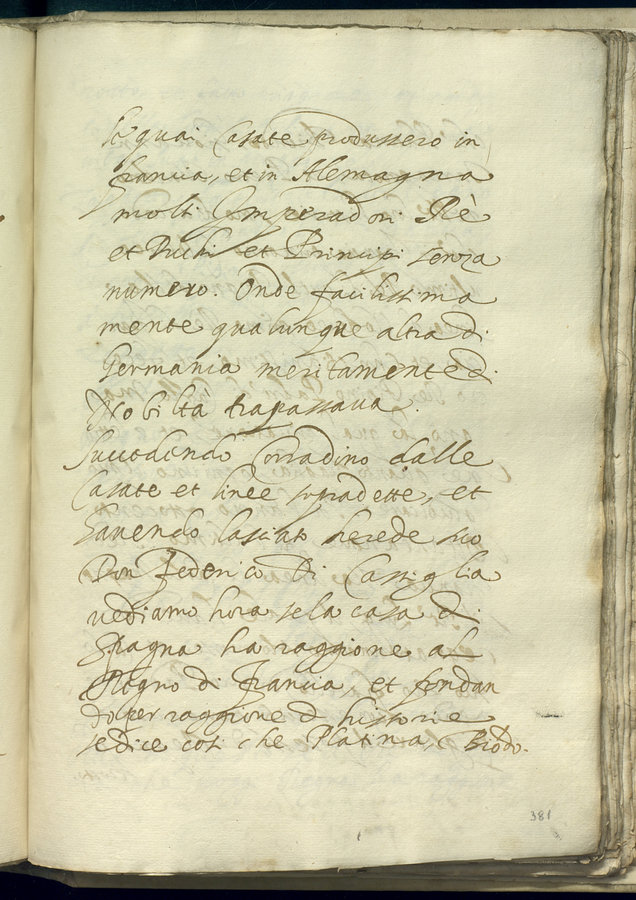 le quai Casate produssero in
francia, et in Alemagna
molti Imperadori Rè
et Duchi et Principi senza
numero. Onde facilissima
mente qualunque altra di
Germania meritamente di
Nobiltà trapassava.
Succedendo Corradino dalle
Casate et linee sopradette, et
havendo lasciato herede suo
Don Federico Di Castiglia
vediamo hora se la casa di
Spagna ha raggione al
Regno di francia, et fondan
do per raggione d historie
se dice così che Platina, Biodo.
381